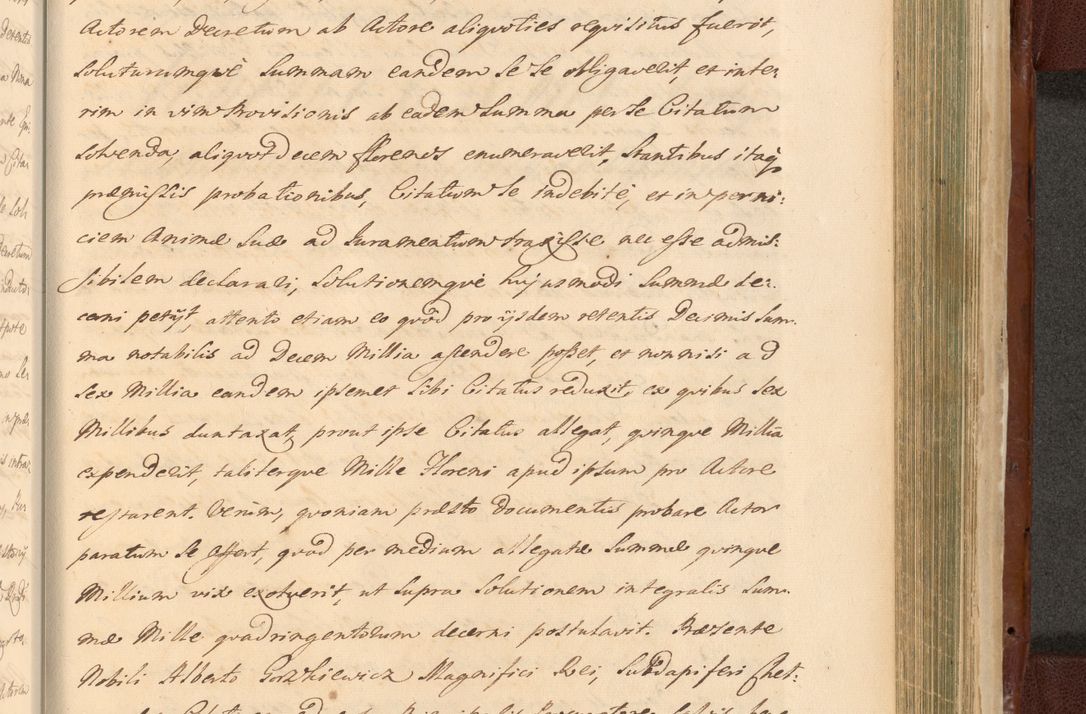 Actorem Decretum ab Actore aliquoties requisitus fuerit,
Soluturumquè Summam eandem Se Se obligaverit, et inte-
rim in vim Provisionis ab eadem Summa per Se Citatum
Solvenda, aliquot decem florenos enumeraverit, Stantibus itaq
præmissis probationibus, Citatum Se indebitè, et in perni-
ciem Animæ Suæ ad Juramentum traxisse nec esse admis-
sibilem declarari, Solutionemquè hujusmodi Summæ de-
cerni petijt, attento etiam eo quòd pro ijsdem retentis Decimis Sum-
ma notabilis ad Decem Millia ascendere posset, et nonnisi ad
Sex Millia eandem ipsemet Sibi Citatus reduxit, ex quibus Sex
Millibus duntaxat, prout ipse Citatus allegat, quinque Millia
expenderit, taliterque Mille Floreni apud ipsum pro Actore
restarent. Verùm, quoniam præsto Documentis probare Actor
paratum Se offert, quòd per medium allegatæ Summæ quinque
Millium vix exolverit, ut Supra Solutionem integralis Sum-
mæ Mille quadringentorum decerni postulavit. Præsente
Nobili Alberto Gorzkiewicz Magnifici Rei, Subdapiferi Chel-